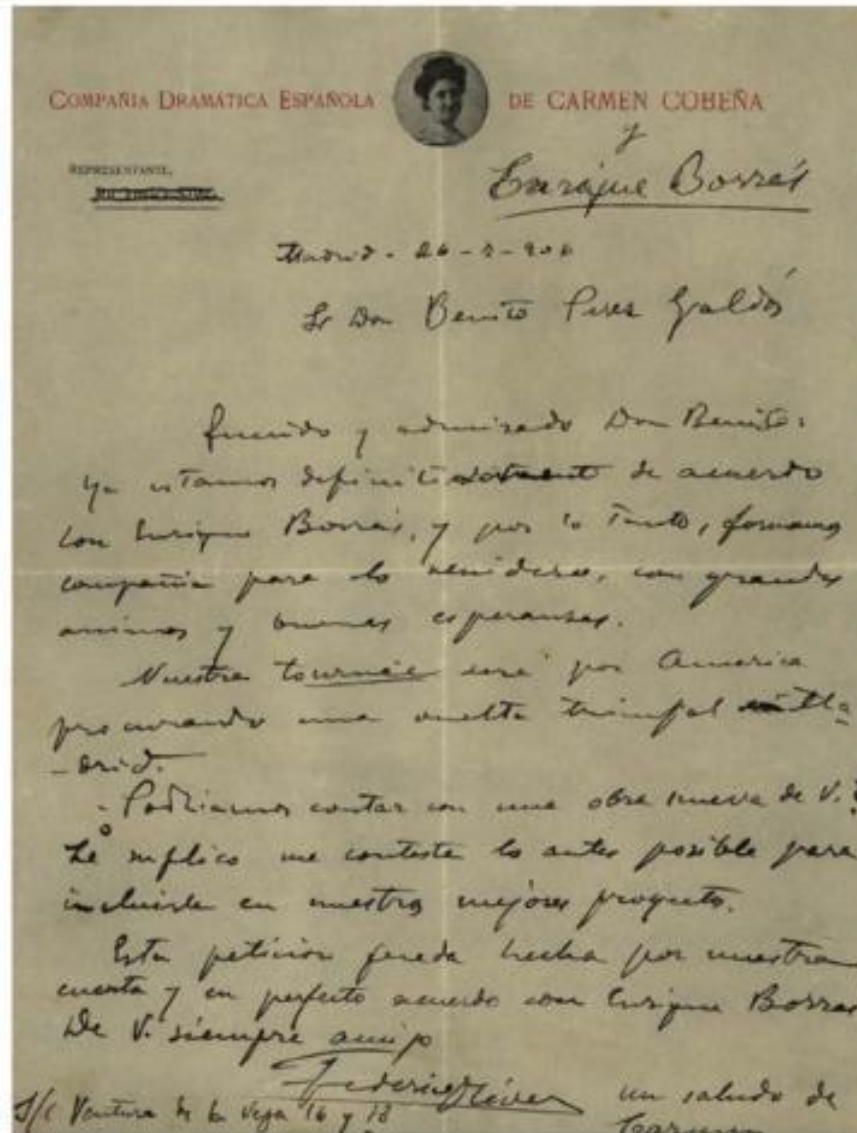 COMPAÑIA DRAMÁTICA ESPAÑOLA DE CARMEN COBEÑA
y
Enrique Borrás
REPRESENTANTE,
Madrid -
Sr Don Benito Perez Galdós
Querido y admirado Don Benito:
Ya estamos definitivamente de acuerdo
con Enrique Borrás, y por lo tanto, formamos
compañia para lo venidero, con grandes
animos y buenas esperanzas.
Nuestra tournée será por America
procurando una vuelta triunfal a Ma
-drid.
¿Podriamos contar con una obra nueva de V.?
Le suplico me conteste lo antes posible para
incluirla en nuestros mejores proyectos.
Esta peticion queda hecha por nuestra
cuenta y en perfecto acuerdo con Enrique Borras
De V. siempre amigo
Federico Oliver
un saludo de
Carmen
S/c Ventura de la Vega 16 y 18